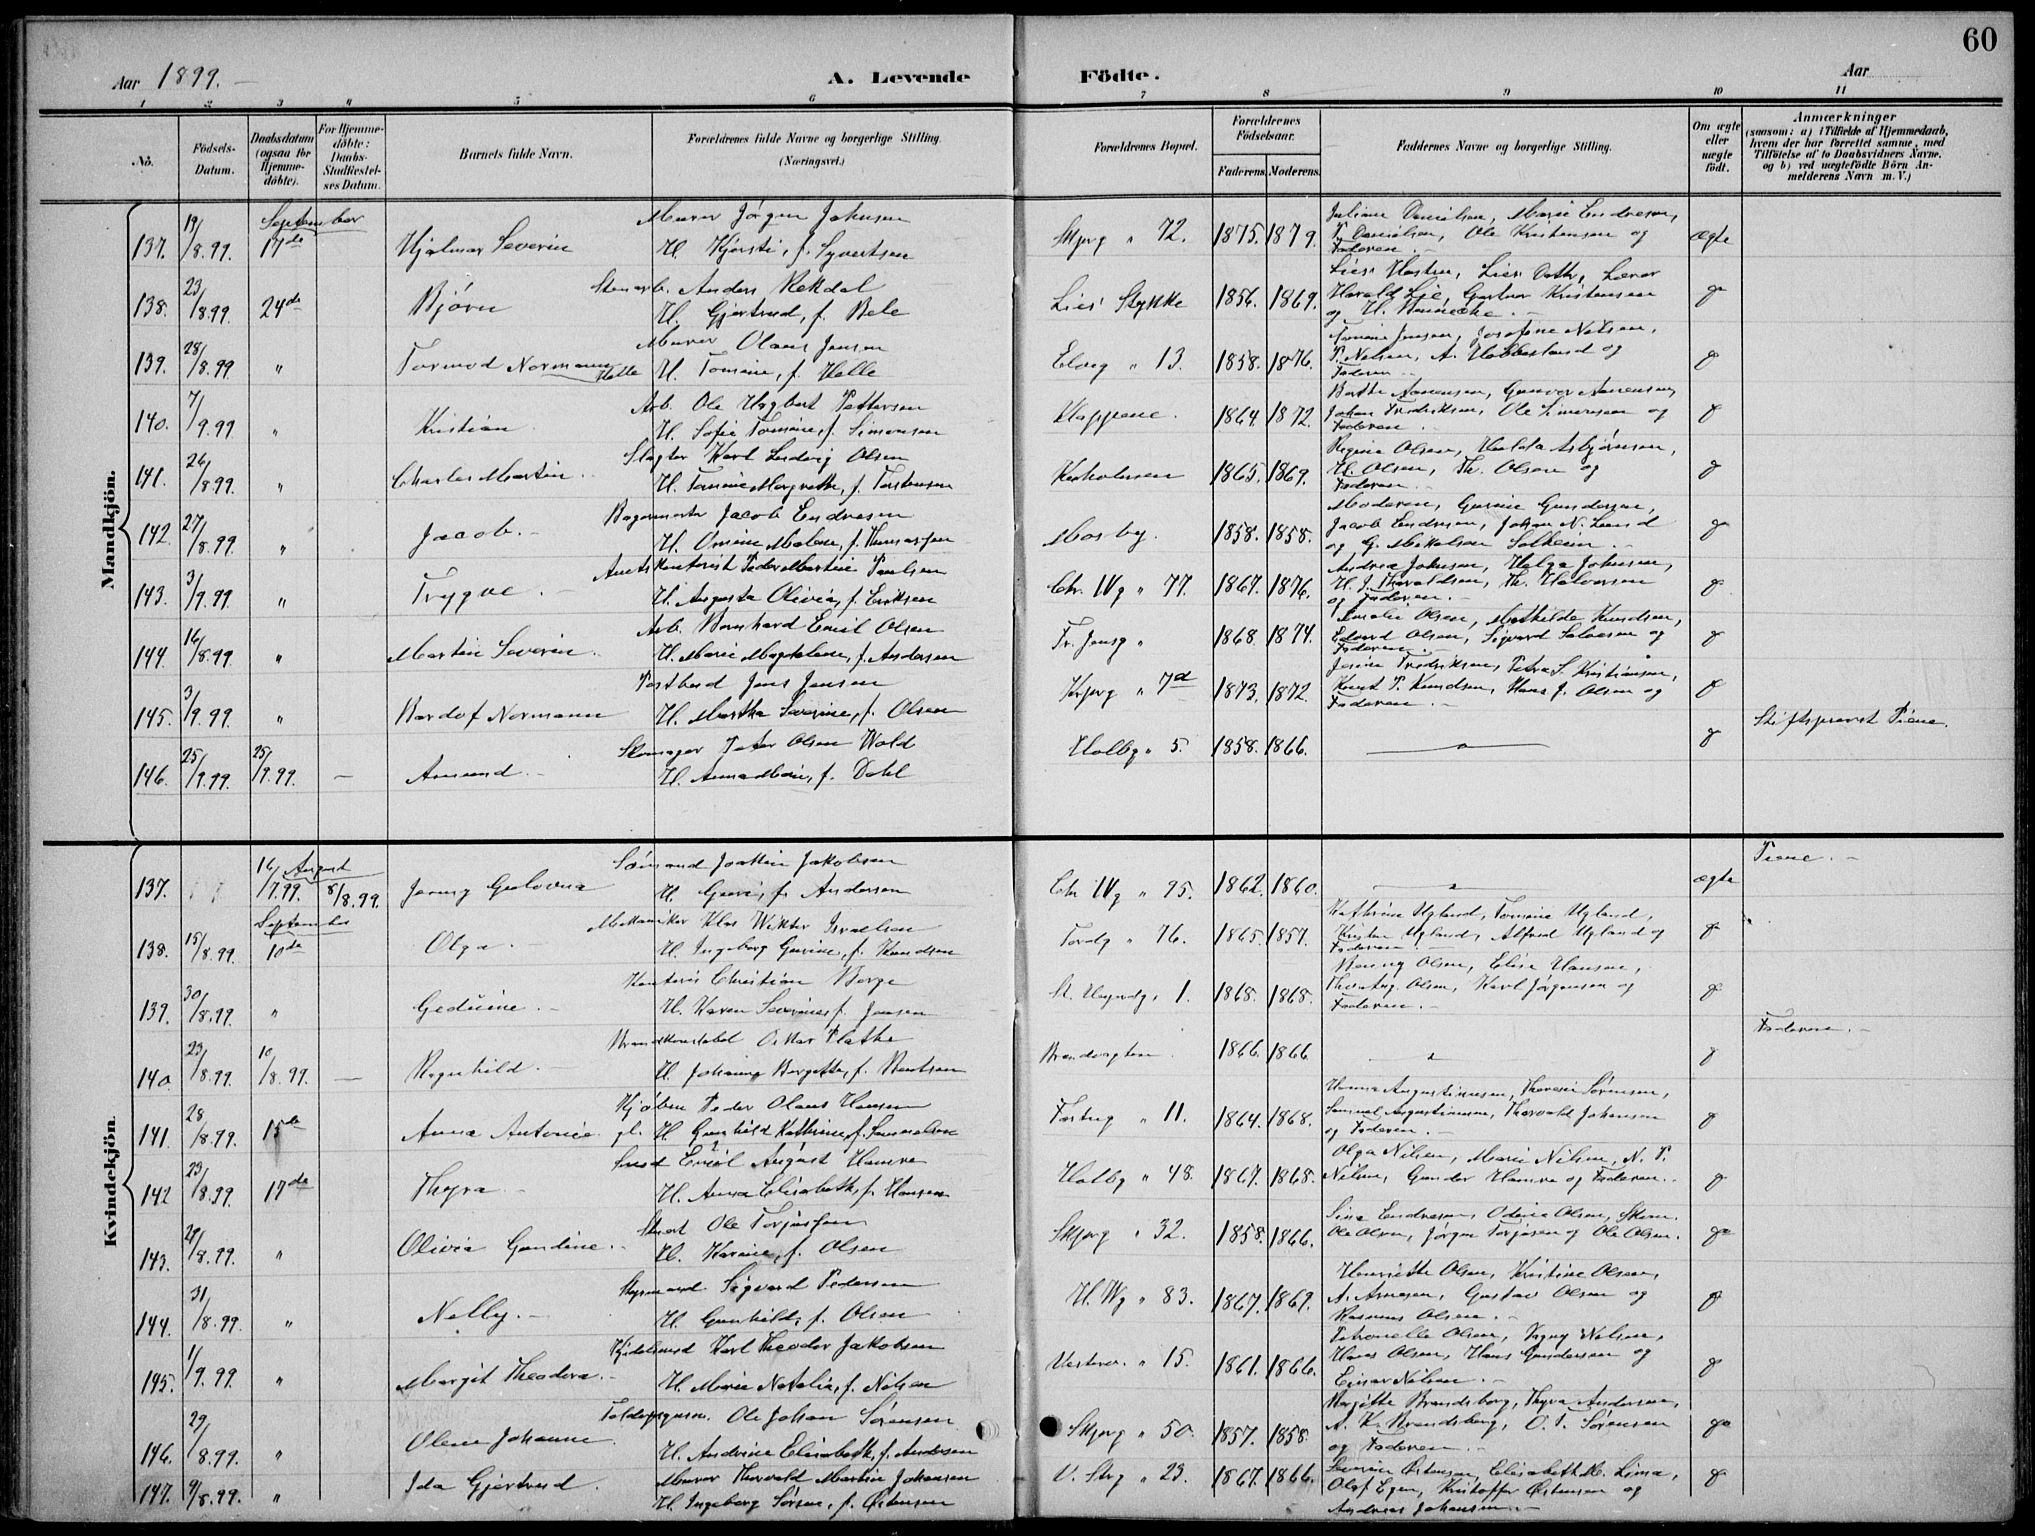 60
Aar 1899.
A. Levende Födte.
Aar
1 2 3 4 5 6 7 8 9 10 11
No.
Födsels-Datum.
Daabsdatum (ogsaa for Hjemme-döbte).
For Hjemme-döbte: Daabs-Stadfæstel-ses Datum.
Barnets fulde Navn.
Forældrenes fulde Navne og borgerlige Stilling. (Næringsvei.)
Forældrenes Bopæl.
Forældrenes Födselsaar.
Faderens. Moderens.
Faddernes Navne og borgerlige Stilling.
Om ægte eller uægte födt.
Anmærkninger
(saasom: a) i Tilfælde af Hjemmedaab, hvem der har forrettet samme, med Tilföielse af to Daabsvidners Navne, og b) ved uægtefödte Börn An-melderens Navn m. V.)
Mandkjön.
September
137. 19/8.99. 17de Hjalmar Severin
Murer Jørgen Johnsen
H. Kjersti, f. Syvertsen
Skjerg " 72. 1875. 1879.
Juliane Danielsen, Marie Endresen,
T. Danielsen, Ole Kristensen og
Faderen.
ægte
138. 23/8.99. 24de Bjørn
Stenarb. Anders Rekdal
H. Gjertrud, f. Bele
Lies Stykke 1856. 1869.
Harald Lie, Gartner Kristensen
139. 28/8.99 " Tormod Normann Helle
Murer Olaus Jensen
H. Tomine, f. Helle
Elveg " 13. 1858. 1876.
Tomine Jensen, Josefine Nilsen,
T. Nilsen, A. Hobbesland og
Faderen
140. 7/9.99 " Kristian
Arb. Ole Hagbert Pettersen
H. Sofie Tomine, f. Simonsen
Klappene. 1864. 1872.
Berthe Aanensen, Gunvor Aanensen,
Johan Fredriksen, Ole Simonsen og
Faderen.
141. 26/8.99. " Charles Martin.
Slagter Karl Ludvig Olsen
H. Tomine Margrethe, f. Torstensen
Kokoleisen 1865. 1869.
Regine Olsen, Hulda Asbjørnsen,
H. Olsen, Th. Olsen og
Faderen.
142. 27/8.99. " Jacob.
Bagermester Jacob Endresen
H. Omine Malene, f.
Mosby. 1858. 1858.
Moderen, Gurine Gundersen,
Jacob Endresen, Johan N. Lund
og G. Mikalsen Solheim.
143. 3/9.99. " Trygve.
Amtskontorist Peder Martin Paulsen
H. Augusta Olivia, f. Eriksen
Chr. IVg " 77. 1867. 1876.
Andrea Johnsen, Helga Johnsen,
H. J. Thorvaldsen, Th. Halvorsen
og Faderen.
144. 16/8.99 " Martin Severin.
Arb. Bernhard Emil Olsen
H. Marie Magdalene, f. Andersen
Fr. Jensg " 1868. 1874.
Amalie Olsen, Mathilde Knudsen,
Edvard Olsen, Sigvard Salvesen og
Faderen.
145. 3/9.99. " Bardof Normann
Postbud Jens Jensen
H. Martha Severine, f. Olsen
Kirkeg " 7d 1873. 1872.
Josine Fredriksen, Petra S. Kristiansen,
Knut P. Knudsen, Hans J. Olsen og
Faderen.
146. 25/9.99. 25/9.99. — Amund.
Skomager Peter Olsen Wold
H. Anna Marie, f. Dahl
Holbg " 5. 1858. 1866.
Stiftsprovst Piene.
Kvindekjön.
137. 16/7.99. August 8/8.99. Jenny Gulovna
Sømand Joachim Jakobsen
H. Guri, f. Andersen
Chr IVg " 95. 1862. 1860.
ægte
Piene.
September
138. 15/8.99. 10de Olga.
Mekaniker Klas Wiktor Israelsen
H. Ingeborg Gurine, f. Knudsen
Tordg " 76. 1865. 1857.
Kathrine Ugland, Tomine Ugland,
Kristen Ugland, Alfred Ugland og
Faderen.
139. 30/8.99. " Geduine.
Kontorist Christian Berge
H. Karen Severine, f. Jensen
1. 1868. 1868.
Benny Olsen, Elise Hansen,
Thv. Aug. Olsen, Karl Jørgensen og
Faderen.
140. 23/8.99. 10/8.99. — Ragnhild.
Brandkonstabel Oskar Plathe
H. Johanne Bergitte, f. Bentsen
Brandvagten. 1866. 1866
Faderen.
141. 28/8.99. 15de Anna Antonie.
Kjøbm Peder Olaus Hansen
H Gunhild Kathrine, f. Samuelsen
Festng " 11. 1864. 1868.
Hanna Augustinusen, Therese Sørensen,
Samuel Augustinusen, Thorvald Johansen
og Faderen.
142 23/8.99 17de Thyra
Smed Emil August Hamre
H. Anna Elisabeth, f. Hansen
Holbg " 48. 1867. 1868.
Olga Nilsen, Marie Nilsen, N. P.
Nilsen, Gunder Hamre og Faderen.
143. 29/8.99. " Olivia Gundine.
Stuert Ole Torjussen
H. Karine, f. Olsen
Skjerg " 32. 1858. 1866.
Sina Endresen, Odine Olsen,
Ole Olsen, Jørgen Torjusen og Ole Olsen.
144. 31/8.99. " Nelly.
Styrmand Sigvard Pedersen
H. Gunhild, f. Olsen
H. Wg " 83. 1867. 1869.
Henriette Olsen, Kristine Olsen,
A. Arnesen, Gustav Olsen og
Rasmus Olsen.
145. 1/9.99. " Margit Theodora.
Kjedelsmed Karl Theodor Jakobsen
H. Marie Natalia, f. Nilsen
Vesterv. " 15. 1861. 1866.
Petronelle Olsen, Signy Nilsen,
Hans Olsen, Hans Gundersen og
Einar Nilsen.
146. 29/8.99. " Olene Johanne.
Toldopsynsm. Ole Johan Sørensen
H. Andrine Elisabeth, f. Andersen
Skjerg " 50. 1857. 1858
Bergitte Brandsberg, Thyra Andersen,
A. K. Brandsberg, O. T. Sørensen
og Faderen.
147. 9/8.99. " Ida Gjertrud.
Murer Thorvald Martin Johansen
H. Ingeborg Sørine, f. Østensen
V. Strg " 23. 1867. 1866.
Severine Østensen, Elisabeth M. Lima,
Olaf Egen, Kristoffer Østensen og
Andreas Johansen.